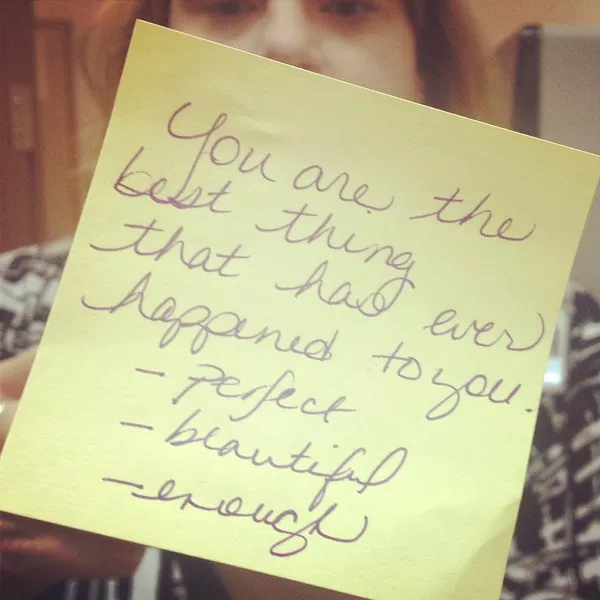 You are the
best thing
that has ever
happened to you.
- perfect
- beautiful
- enough